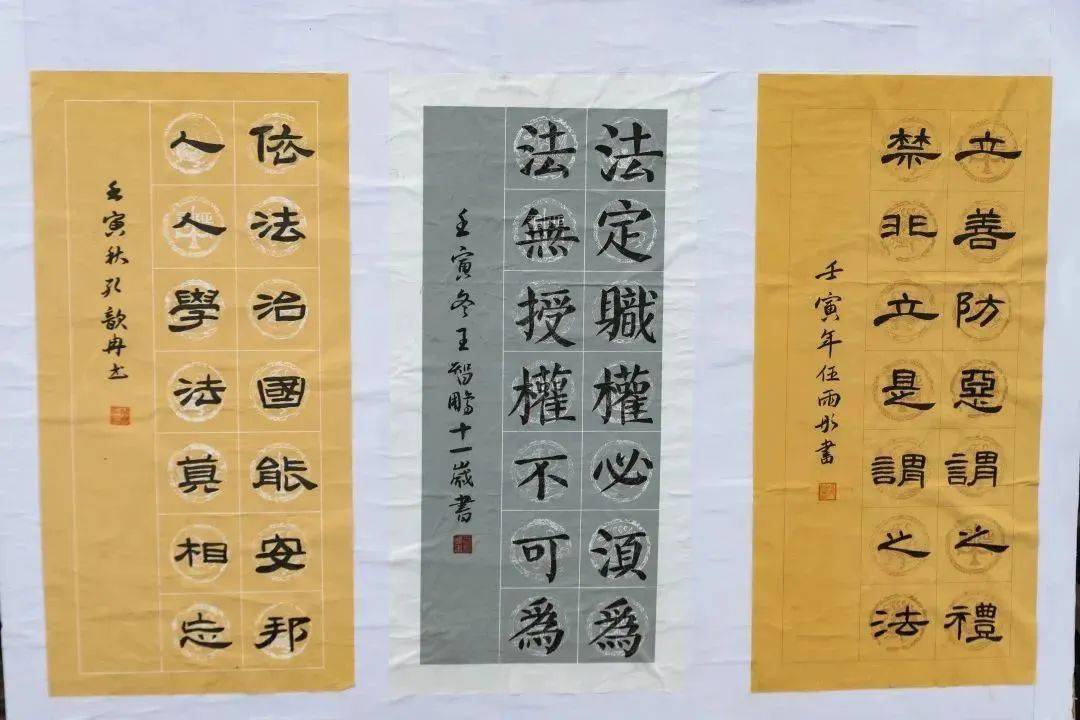 立善防惡謂之禮
禁非立是謂之法
壬寅年伍雨彤書
法定職權必須爲
法無授權不可爲
壬寅冬王智鵬十一歲書
依法治國能安邦
人人學法莫相忘
壬寅秋孔歆冉书